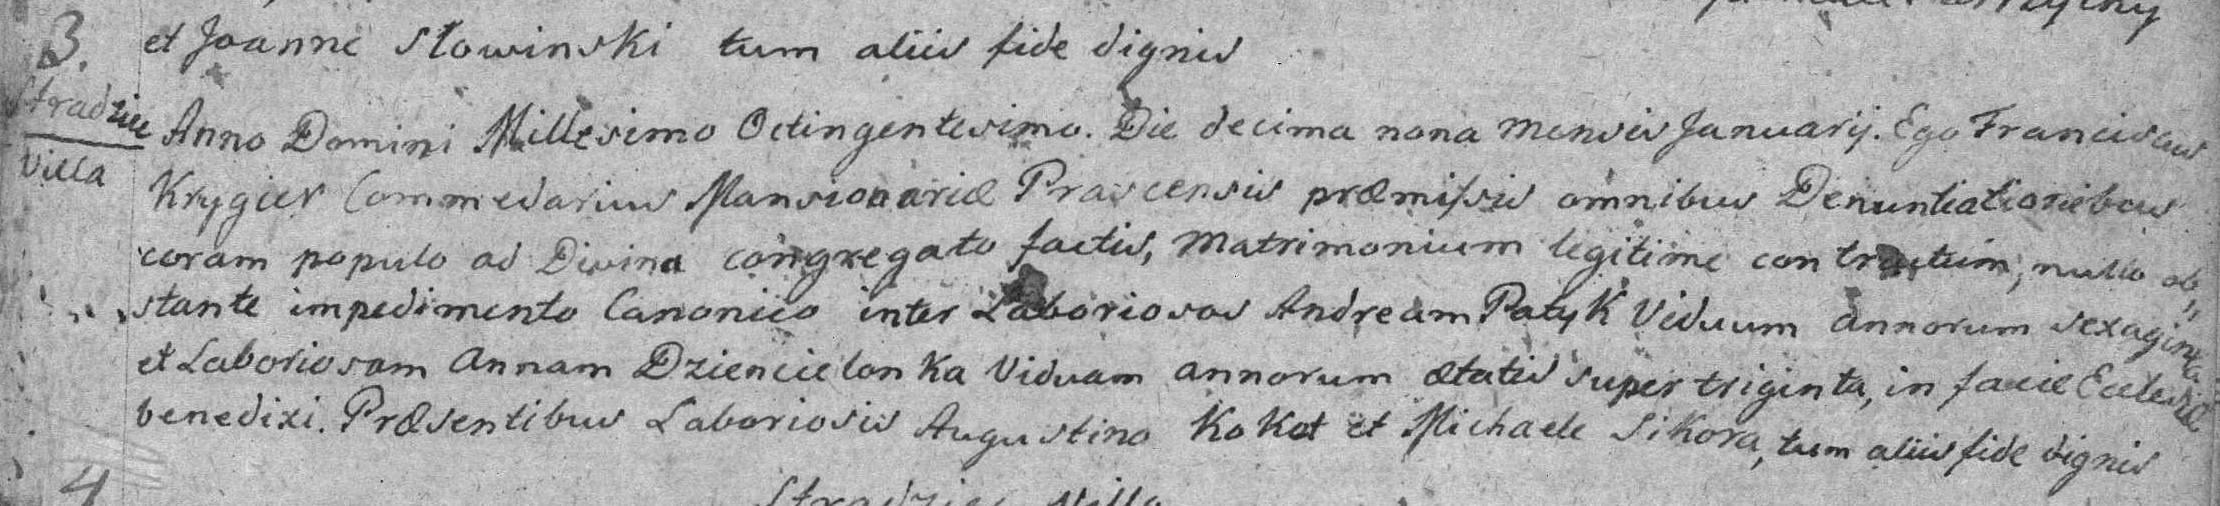 3. et Joanne Słowinski tum aliis fide dignis
Stradziec
Villa
Anno Domini Millesimo Octingentesimo. Die decima nona mensis Januarij. Ego Franciscus
Krygier Commendarius Mansionariæ Prascensis præmissis omnibus Denuntiationibus
coram populo ad Divina congregato factis, Matrimonium legitime contractum, nullo ob„
stante impedimento Canonico inter Laboriosos Andream Patyk Viduum annorum sexaginta
et Laboriosam Annam Dziencielonka Viduam annorum ætatis super triginta, in facie Ecclesiæ
benedixi. Præsentibus Laboriosis Augustino Kokot et Michaele Sikora, tum aliis fide dignis
4
Villa